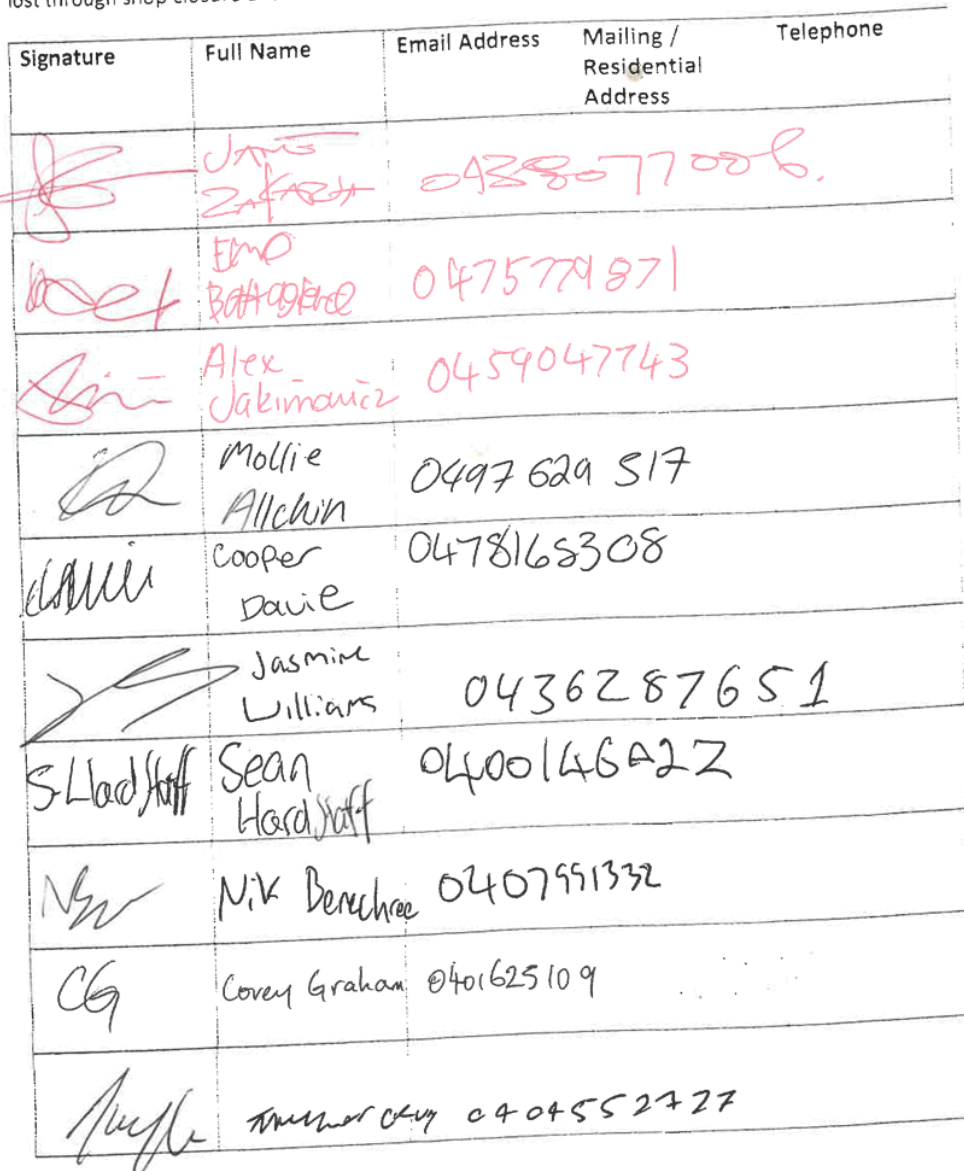 lost through shop closure
Signature Full Name Email Address Mailing / Residential Address Telephone
Alex
Jakimowicz 0459047743
Mollie
Allchin 0497 629 517
Cooper
Davie 0478168308
Jasmine
Williams 0436287651
S Hardstaff Sean
Hardstaff 0400146
Nik Berechree 0407991332
CG Corey Graham 0401625109
0404552727
0475779871
0438077006.